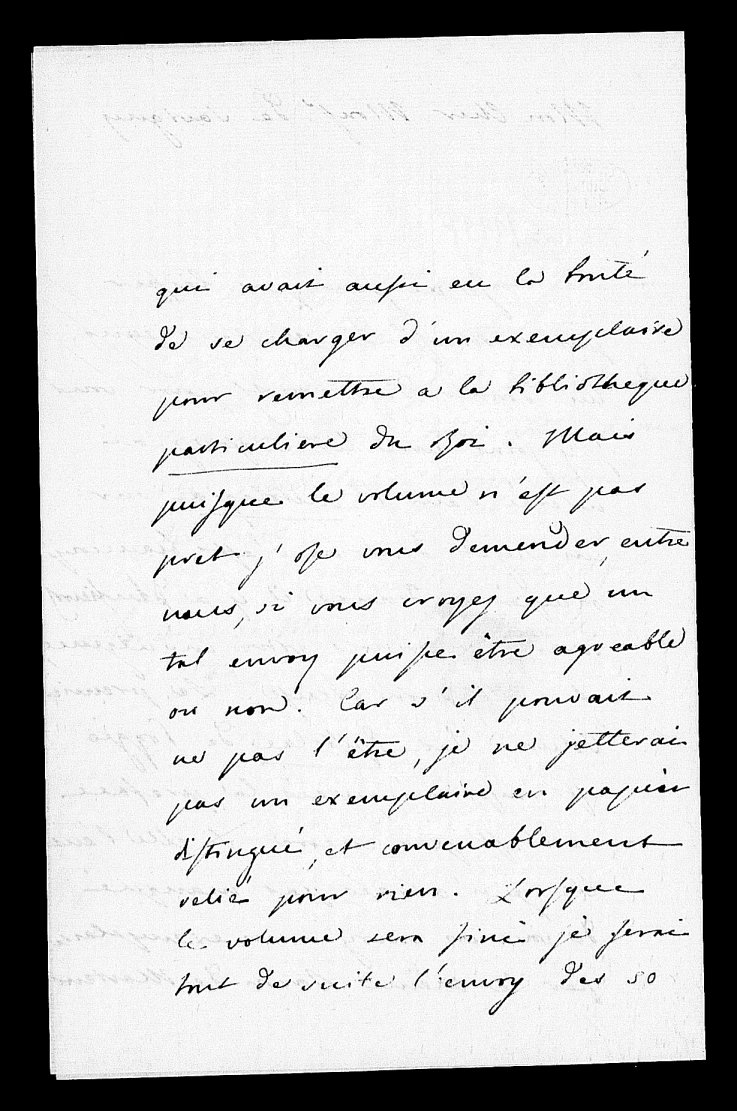 qui avait aussi eu la bonté
de se charger d'un exemplaire
pour remettre a la bibliotheque
particuliere du Roi. Mais
puisque le volume n'est pas
pret j'ose vous demander, entre
nous, si vous croyez que un
tal envoy puisse être agreable
ou non. Car s'il pouvait
ne pas l'être, je ne jetterai
pas un exemplaire en papier
distingué, et convenablement
relié pour rien. Lorsque
le volume sera fini je ferai
tout de suite l'envoy des 50